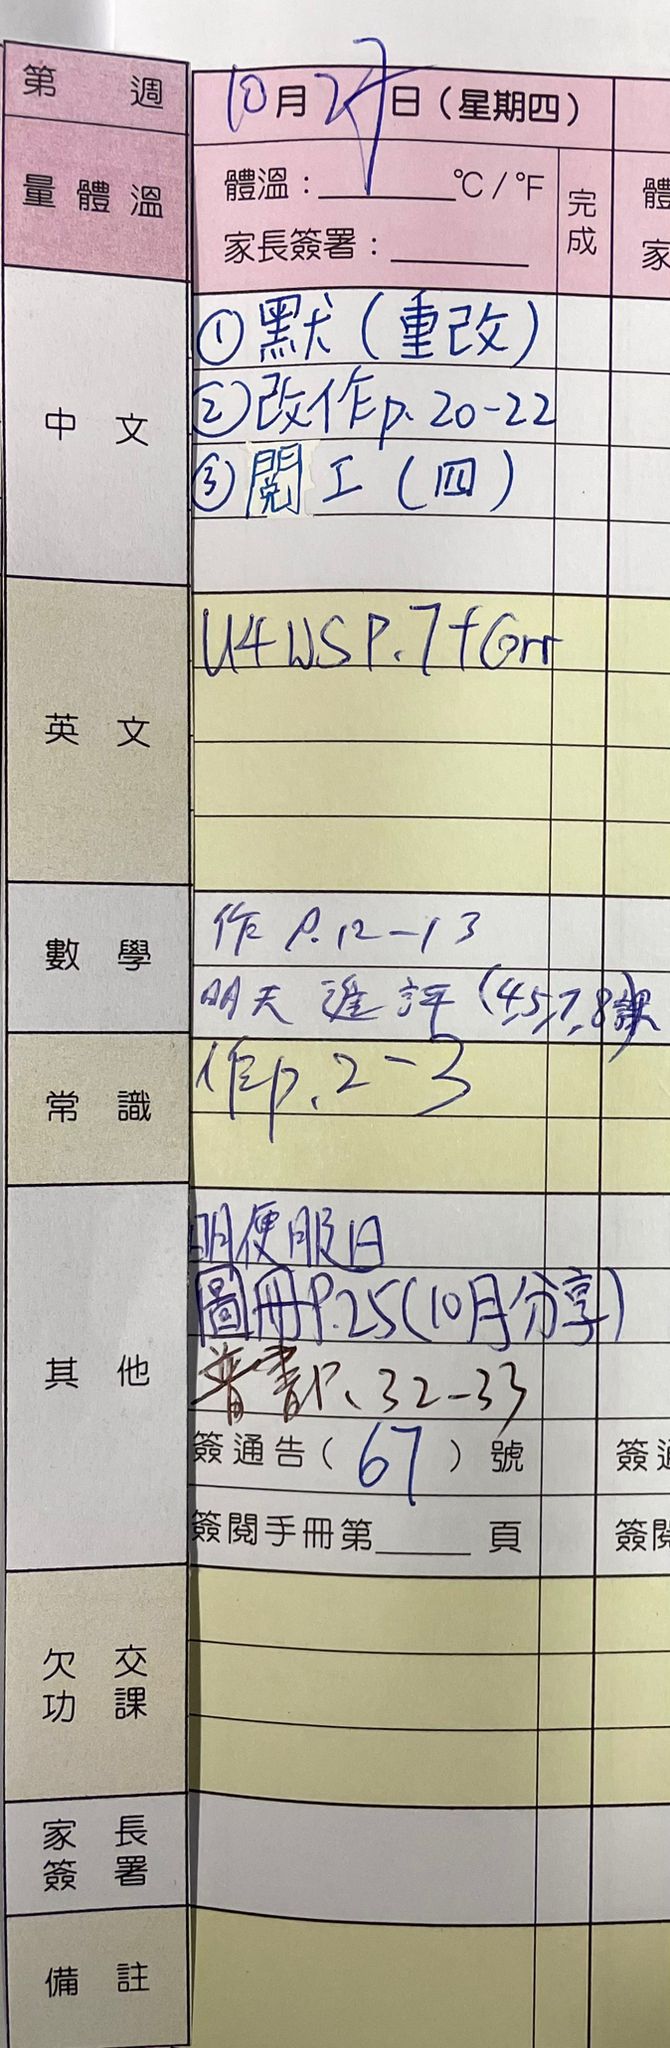 第 週
10月27日（星期四）
量體溫
體溫：______°C / °F
完成
家長簽署：______
體
家
中文
①默（重改）
②改作p.20-22
③閱工（四）
英文
U4 WS P.7 + Grr
數學
作 P.12-13
明天進評（4,5,7,8課）
常識
作p.2-3
其他
明便服日
圖冊P.25（10月分享）
普書P.32-33
簽通告（67）號
簽通
簽閱手冊第______頁
簽閱
欠交功課
家長簽署
備註